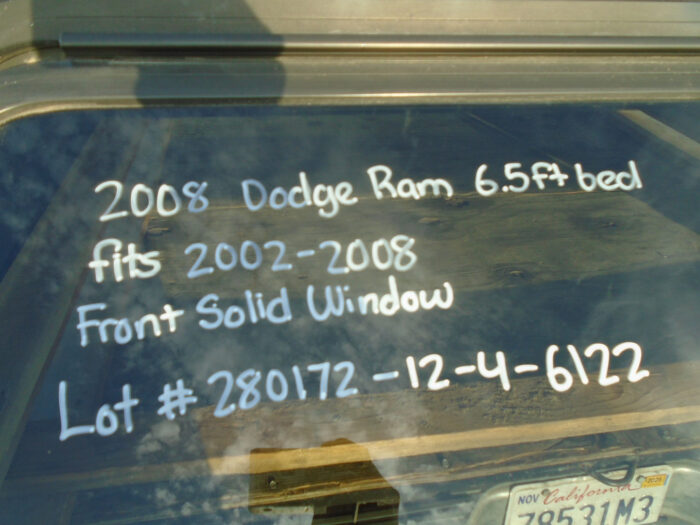 2008 Dodge Ram 6.5ft bed
fits 2002-2008
Front Solid Window
Lot # 280172-12-4-6122
NOV California
78531M3